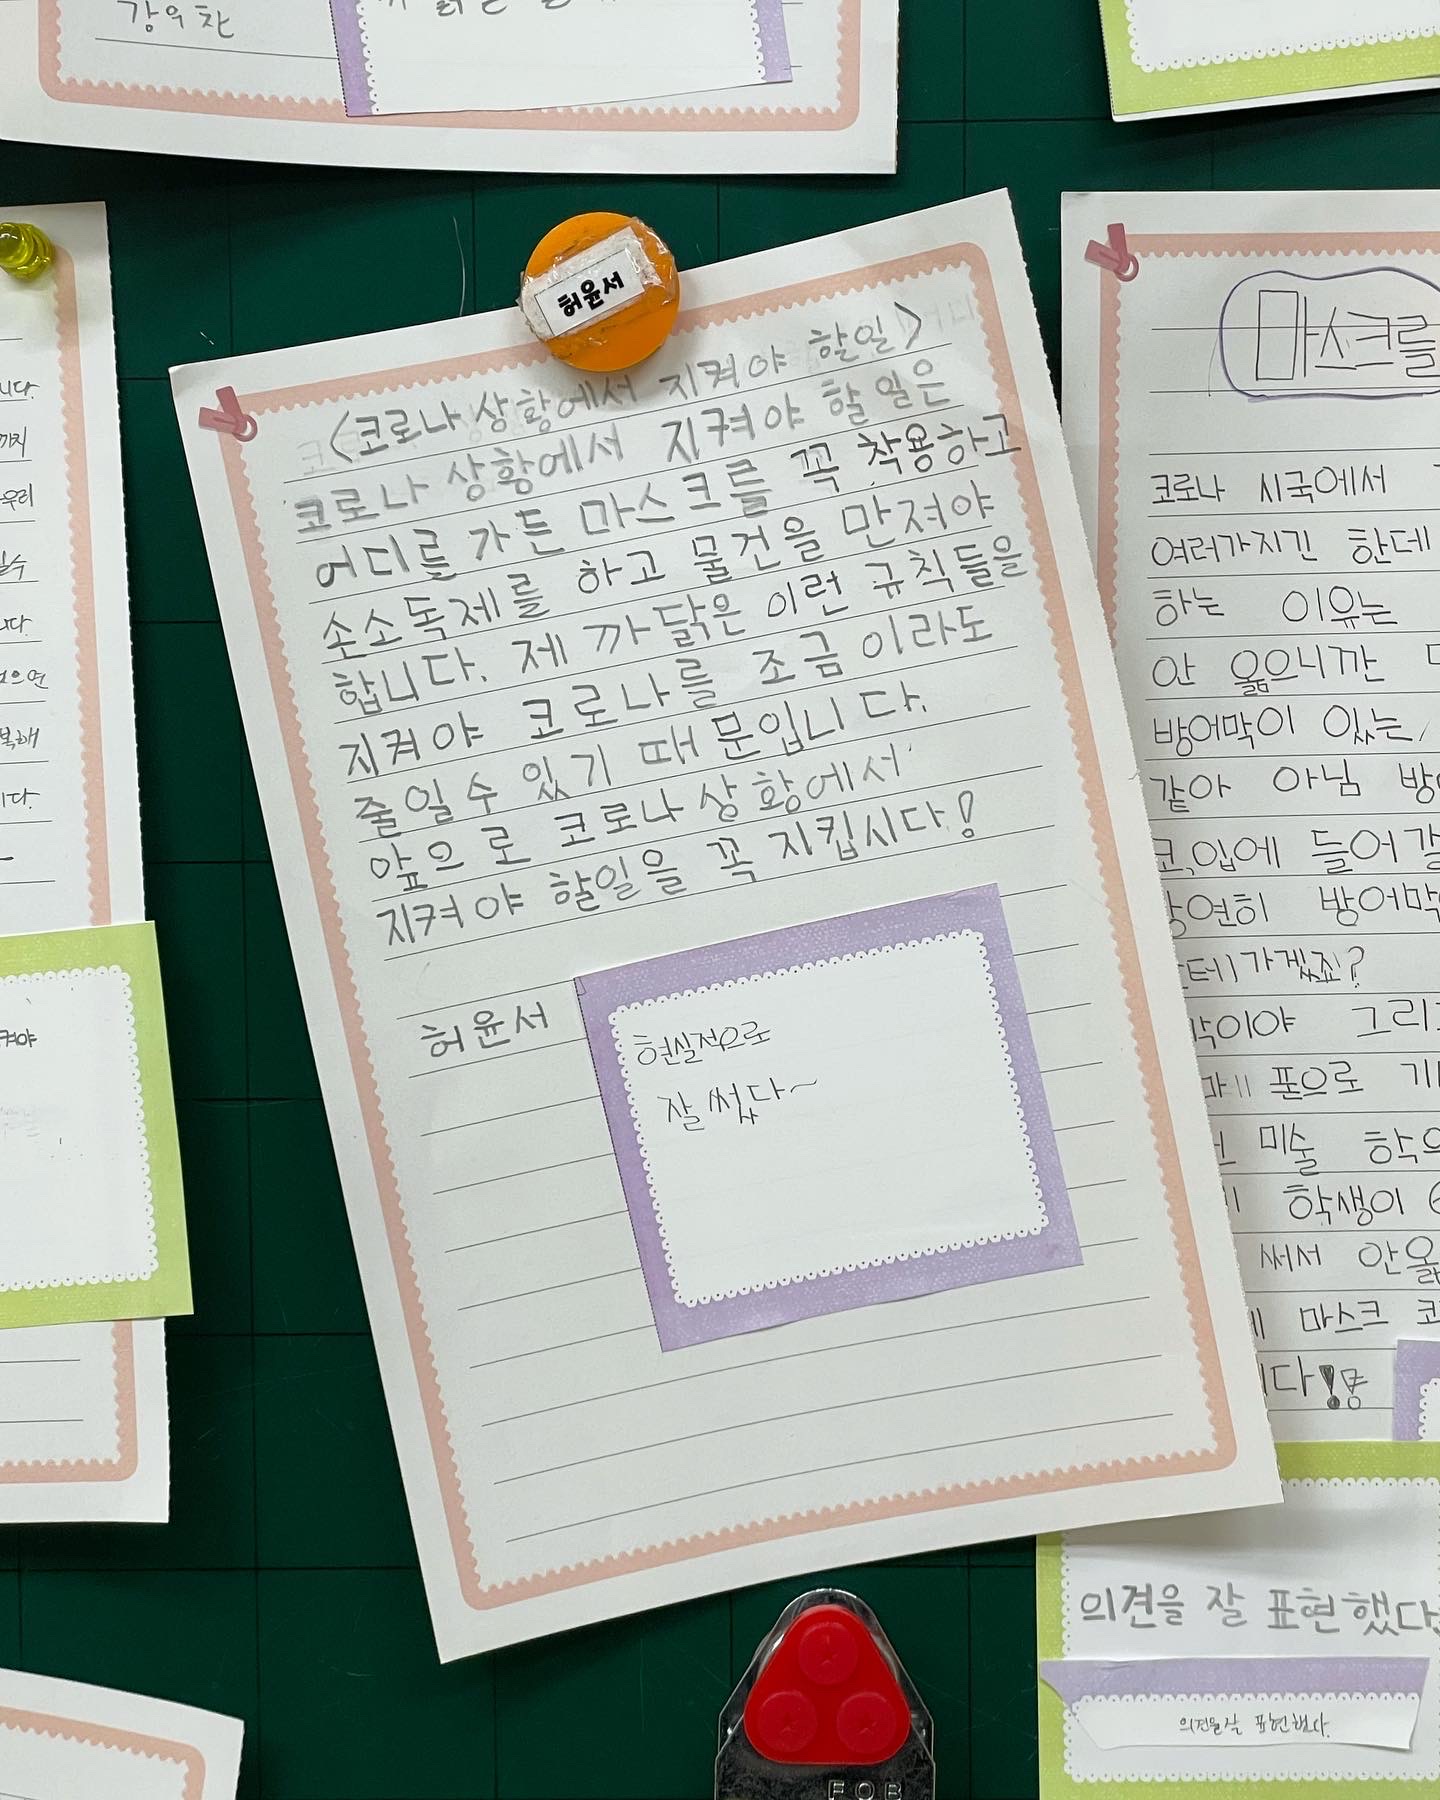 강우찬
허윤서
<코로나 상황에서 지켜야 할일>
코로나 상황에서 지켜야 할일은
어디를 가든 마스크를 꼭 착용하고
손소독제를 하고 물건을 만져야
합니다. 제 까닭은 이런 규칙들을
지켜야 코로나를 조금이라도
줄일수 있기 때문입니다.
앞으로 코로나 상황에서
지켜야 할일을 꼭 지킵시다!
허윤서
현실적으로
잘 썼다~
니다.
까지
우리
니다.
마스크를
코로나 시국에서
여러가지긴 한데
하는 이유는
안 옮으니깐
방어막이 있는
같아 아님
코,입에 들어갈
당연히 방어막
가겠죠?
막이야 그리고
폰으로
미술 학
학생이
써서 안옮
마스크
니다!
의견을 잘 표현했다
의견을 잘 표현했다.
FOB